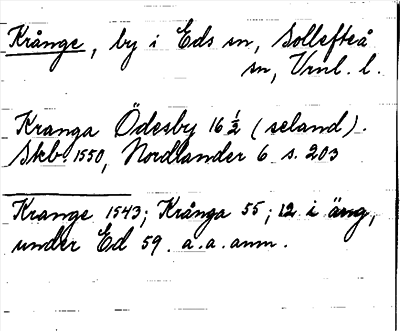 Krånge, by i Eds sn, Sollefteå
sn, Vrnl. l.
Kranga Ödesby 16 ½ (seland).
Skb. 1550, Nordlander 6 s. 203
Krange 1543; Krånga 55; 12 i äng,
under Ed 59. a.a. anm.